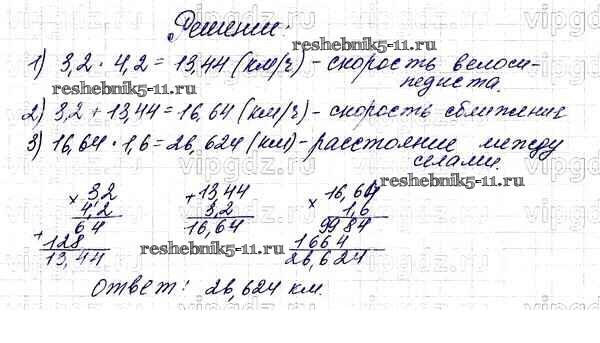 Решение:
reshebnik5-11.ru
1) 3,2 · 4,2 = 13,44 (км/ч) - скорость велоси-
педиста.
reshebnik5-11.ru
2) 3,2 + 13,44 = 16,64 (км/ч) - скорость сближения
3) 16,64 · 1,6 = 26,624 (км) - расстояние между
сёлами.
reshebnik5-11.ru
× 3,2
4,2
64
+ 128
13,44
+ 13,44
3,2
16,64
× 16,64
1,6
9984
1664
26,624
reshebnik5-11.ru
Ответ: 26,624 км.
vipgdz.ru